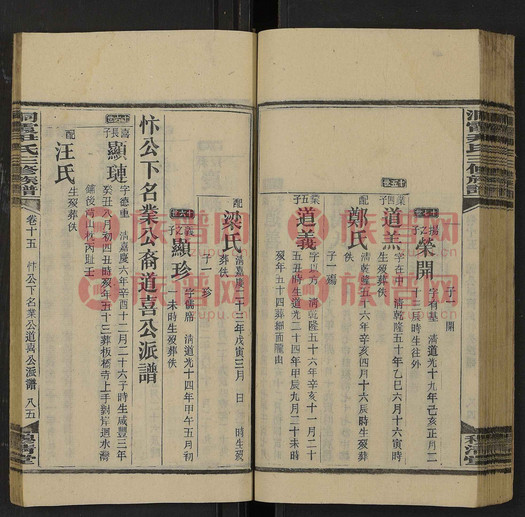 洞霞尹氏三修族譜
十七世
揚之子
榮開
子一 開
字有基 清道光十九年己亥正月二
辰時生往外
十五世
業四子
道羔
字在中 清乾隆五十年乙巳六月十六寅時
生歿葬佚
配
鄭氏
子一 揚
清乾隆五十六年辛亥四月十六辰時生歿葬
佚
業五子
道義
字以方 清乾隆五十六年辛亥十一月二十
五丑時生道光二十四年甲辰九月二十未時
歿年五十四葬細面隴山
配
梁氏
子一 珍
清嘉慶二十三年戊寅三月 日 時生歿
葬佚
十六世
義之子
顯珍
字儒席 清道光十四年甲午五月初
未時生歿葬佚
忭公下名業公裔道喜公派譜
十六世
喜長子
顯璉
字德重 清嘉慶六年辛酉十二月二十六子時生咸豐三年
癸丑八月初四丑時歿年五十三葬板橋寺上手對岸迴水灣
鋪後
丙山
丙趾壬
配
汪氏
生歿葬佚
洞霞尹氏三修族譜
卷十五
忭公下名業公道喜公派譜
八五
穆清堂